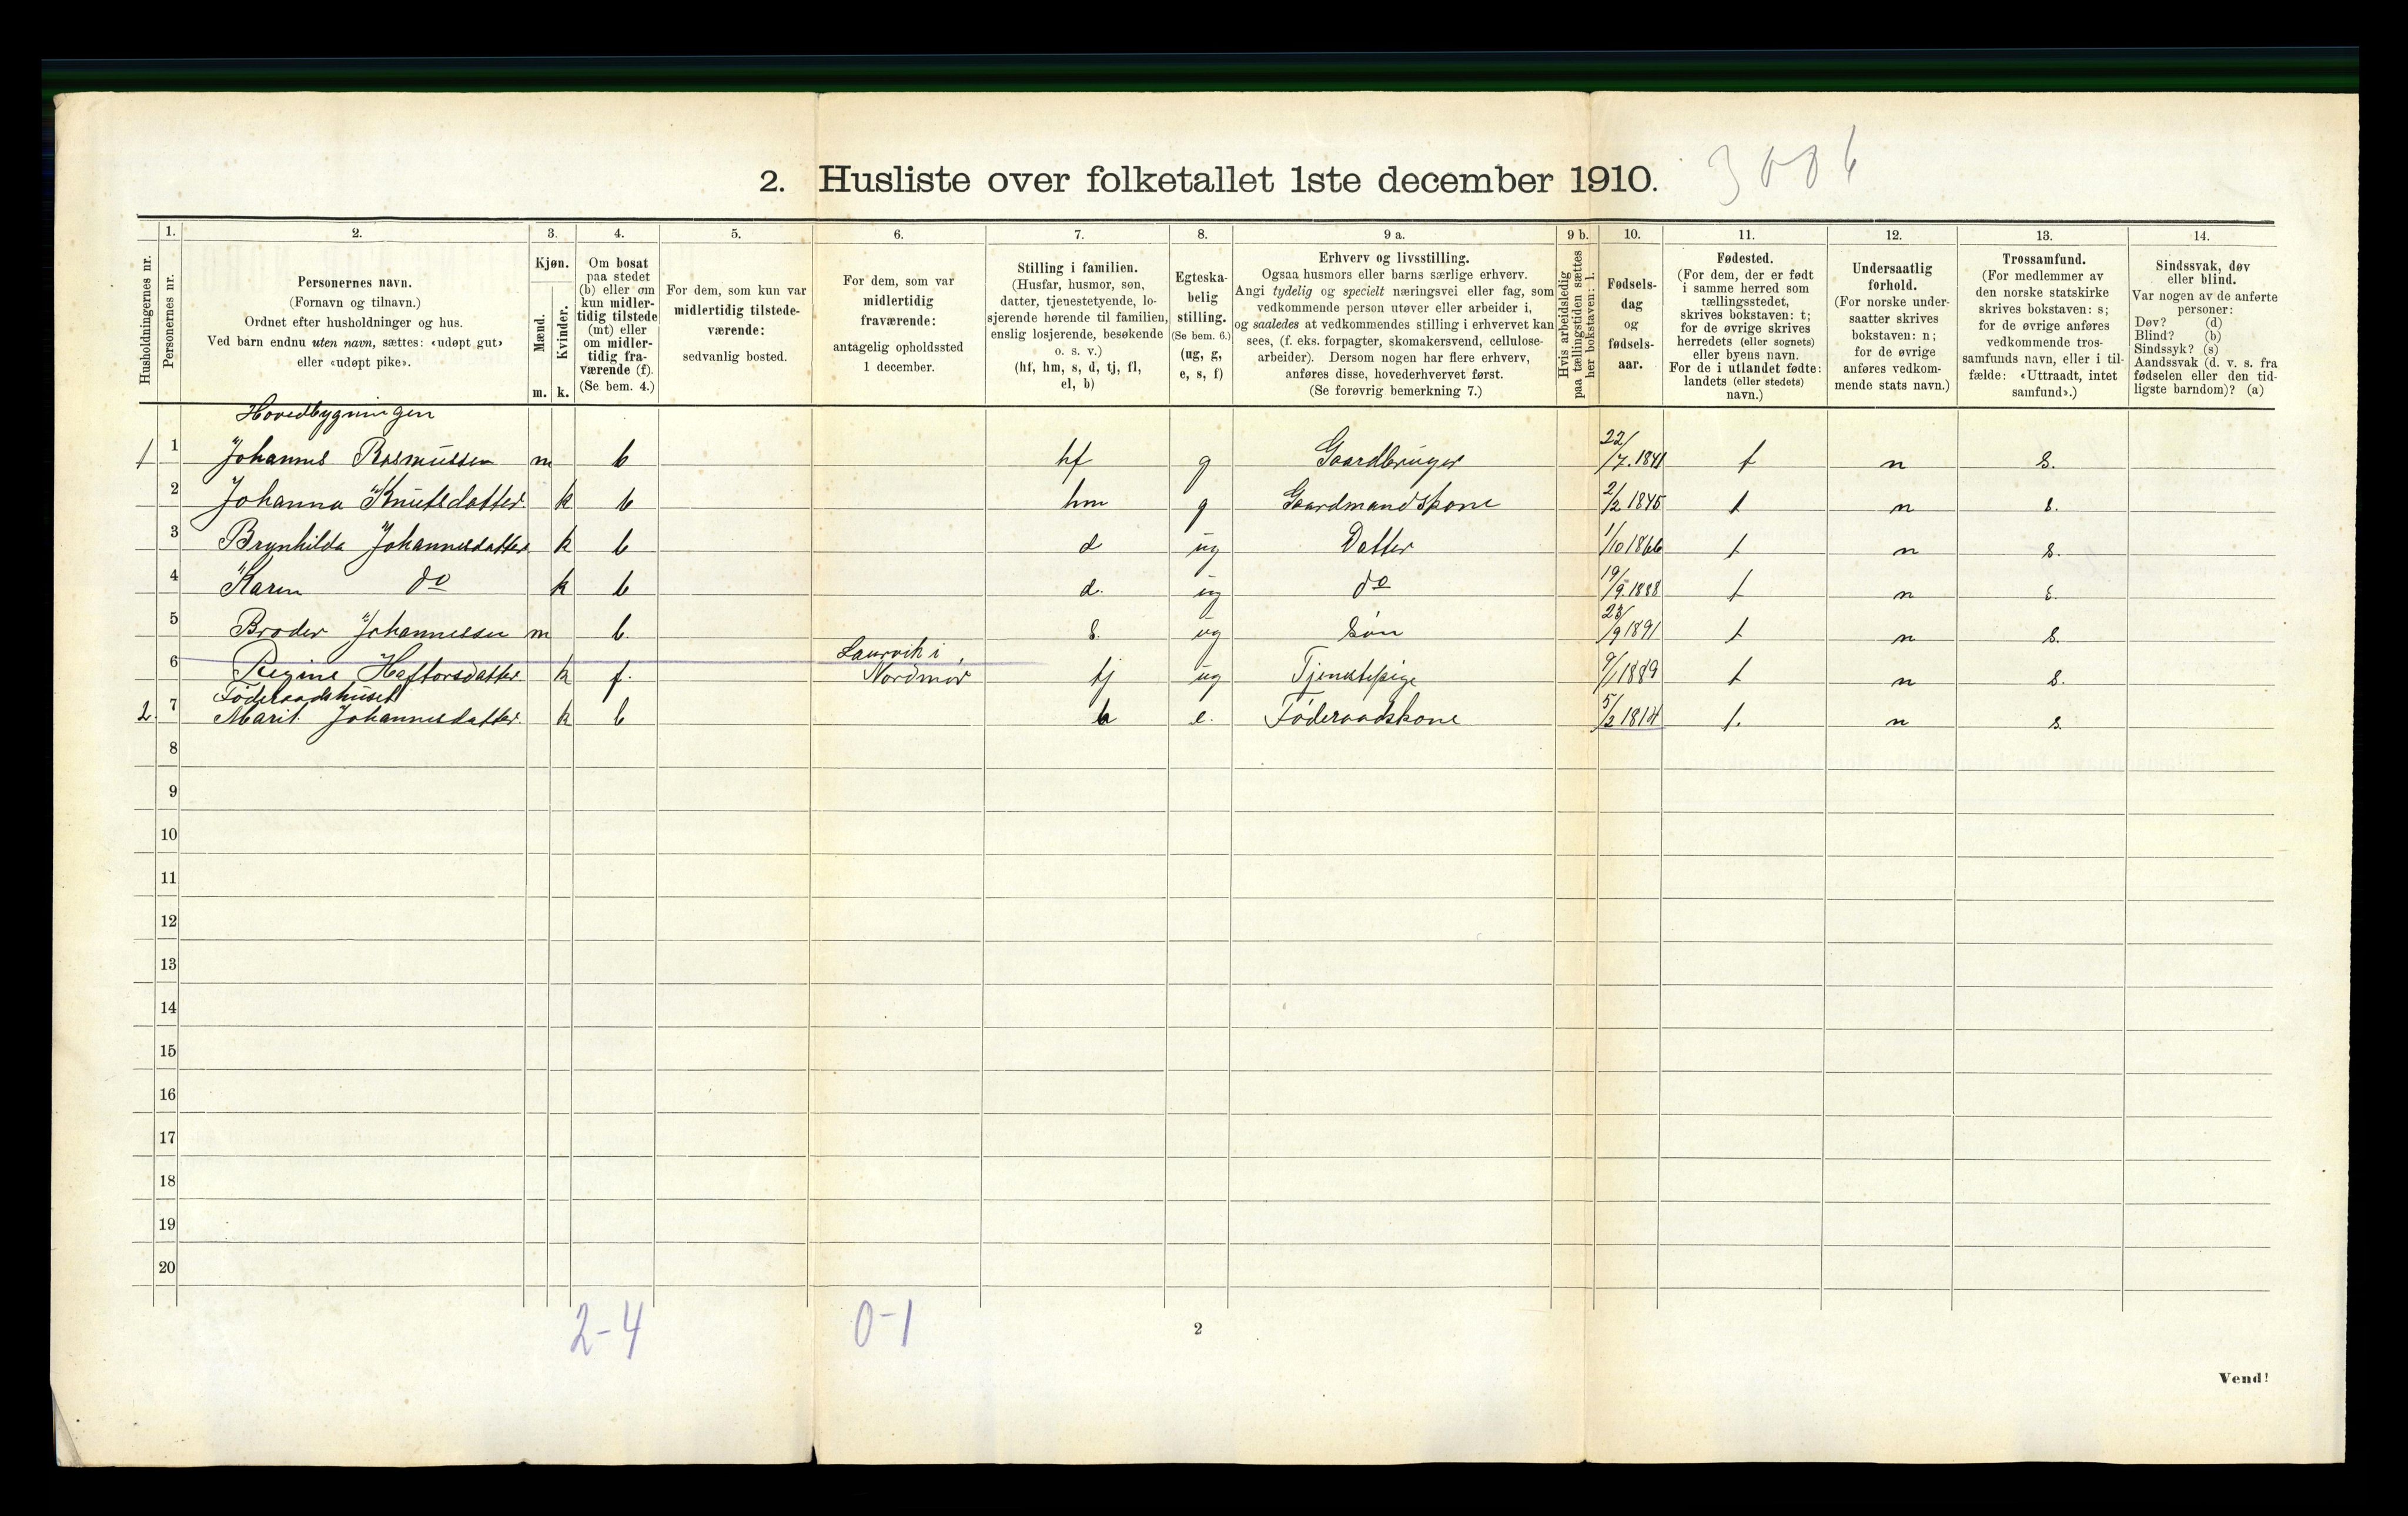 2. Husliste over folketallet 1ste december 1910.
3006
Husholdningernes nr.
1.
Personernes nr.
2.
Personernes navn.
(Fornavn og tilnavn.)
Ordnet efter husholdninger og hus.
Ved barn endnu uten navn, sættes: «udøpt gut»
eller «udøpt pike».
3.
Kjøn.
Mænd.
Kvinder.
m. k.
4.
Om bosat
paa stedet
(b) eller om
kun midler-
tidig tilstede
(mt) eller
om midler-
tidig fra-
værende (f).
(Se bem. 4.)
5.
For dem, som kun var
midlertidig tilstede-
værende:
sedvanlig bosted.
6.
For dem, som var
midlertidig
fraværende:
antagelig opholdssted
1 december.
7.
Stilling i familien.
(Husfar, husmor, søn,
datter, tjenestetyende, lo-
sjerende hørende til familien,
enslig losjerende, besøkende
o. s. v.)
(hf, hm, s, d, tj, fl,
el, b)
8.
Egteska-
belig
stilling.
(Se bem. 6.)
(ug, g,
e, s, f)
9 a.
Erhverv og livsstilling.
Ogsaa husmors eller barns særlige erhverv.
Angi tydelig og specielt næringsvei eller fag, som
vedkommende person utøver eller arbeider i,
og saaledes at vedkommendes stilling i erhvervet kan
sees, (f. eks. forpagter, skomakersvend, cellulose-
arbeider). Dersom nogen har flere erhverv,
anføres disse, hovederhvervet først.
(Se forøvrig bemerkning 7.)
9 b.
Hvis arbeidsledig
paa tællingstiden sættes
her bokstaven: l.
10.
Fødsels-
dag
og
fødsels-
aar.
11.
Fødested.
(For dem, der er født
i samme herred som
tællingsstedet,
skrives bokstaven: t;
for de øvrige skrives
herredets (eller sognets)
eller byens navn.
For de i utlandet fødte:
landets (eller stedets)
navn.)
12.
Undersaatlig
forhold.
(For norske under-
saatter skrives
bokstaven: n;
for de øvrige
anføres vedkom-
mende stats navn.)
13.
Trossamfund.
(For medlemmer av
den norske statskirke
skrives bokstaven: s;
for de øvrige anføres
vedkommende tros-
samfunds navn, eller i til-
fælde: «Uttraadt, intet
samfund».)
14.
Sindssvak, døv
eller blind.
Var nogen av de anførte
personer:
Døv? (d)
Blind? (b)
Sindssyk? (s)
Aandssvak (d. v. s. fra
fødselen eller den tid-
ligste barndom)? (a)
Hovedbygningen
1 1 Johannes Rasmussen m b hf g Gaardbruger 22/7.1841 t n s.
2 Johanna Knutsdatter. k b hm g Gaardmandskone 2/2 1845 t n s.
3 Brynhilda Johannesdatter k b d ug Datter 1/10 1866 t n s.
4 Karen do k b d. ug do 19/9.1888 t n s.
5 Broder Johannessen m b. s. ug Søn 23/9 1891 t n s.
Laurvik i
6 Regine Haftorsdatter k f. Nordmør tj ug Tjenestepige 9/1 1889 t n s.
Føderaadshuset
2 7 Marit Johannesdatter. k b b e. Føderaadskone 5/2 1814 t. n s.
8
9
10
11
12
13
14
15
16
17
18
19
20
2-4 0-1
2
Vend!